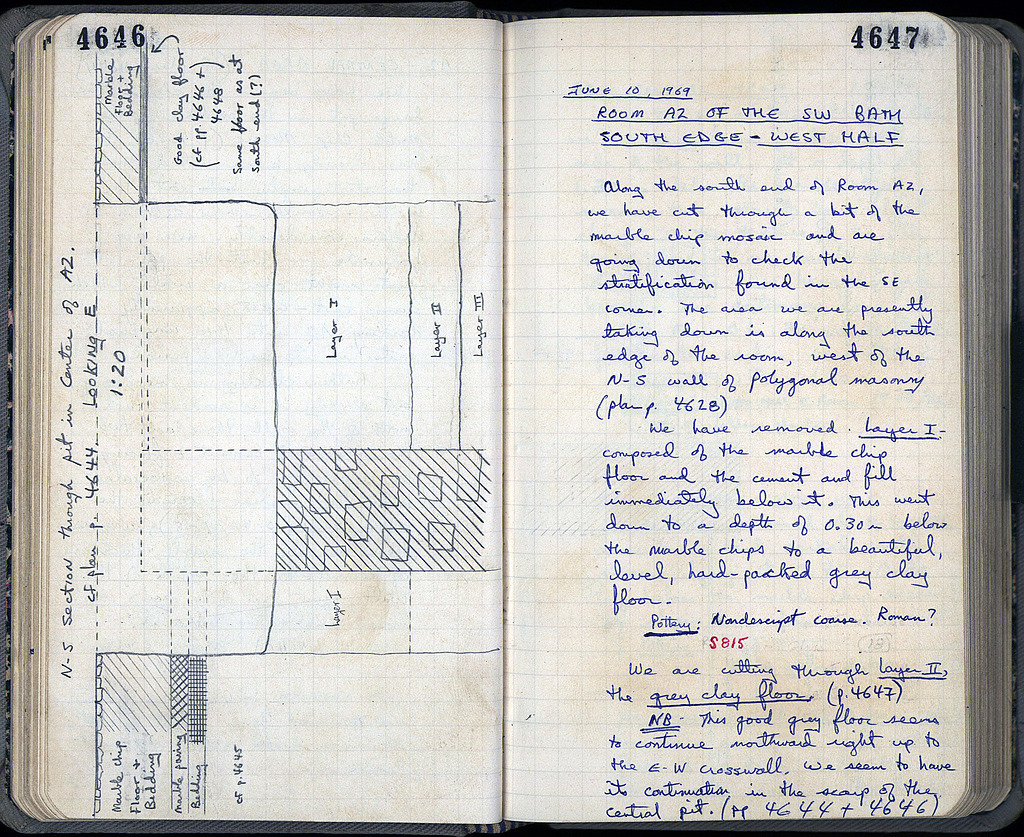 4646
N-S Section through pit in Center of A2.
cf plan p. 4644 Looking E
1:20
Marble
Floor +
Bedding
Good clay floor
(cf pp 4646 +
4648
Same floor as at
south end (?)
Layer I
Layer II
Layer III
Layer I
Marble chip
Floor +
Bedding
Marble paving
Bedding
cf p. 4645
4647
JUNE 10, 1969
ROOM A2 OF THE SW BATH
SOUTH EDGE - WEST HALF
Along the south end of Room A2,
we have cut through a bit of the
marble chip mosaic and are
going down to check the
stratification found in the SE
corner. The area we are presently
taking down is along the south
edge of the room, west of the
N-S wall of polygonal masonry
(plan p. 4628)
We have removed Layer I -
composed of the marble chip
floor and the cement and fill
immediately below it. This went
down to a depth of 0.30m below
the marble chips to a beautiful,
level, hard-packed grey clay
floor.
Pottery: Nondescript coarse. Roman?
S815
We are cutting through layer II,
the grey clay floor. (p. 4647)
NB - This good grey floor seems
to continue northward right up to
the E-W crosswall. We seem to have
its continuation in the scarp of the
central pit. (pp 4644 + 4646)